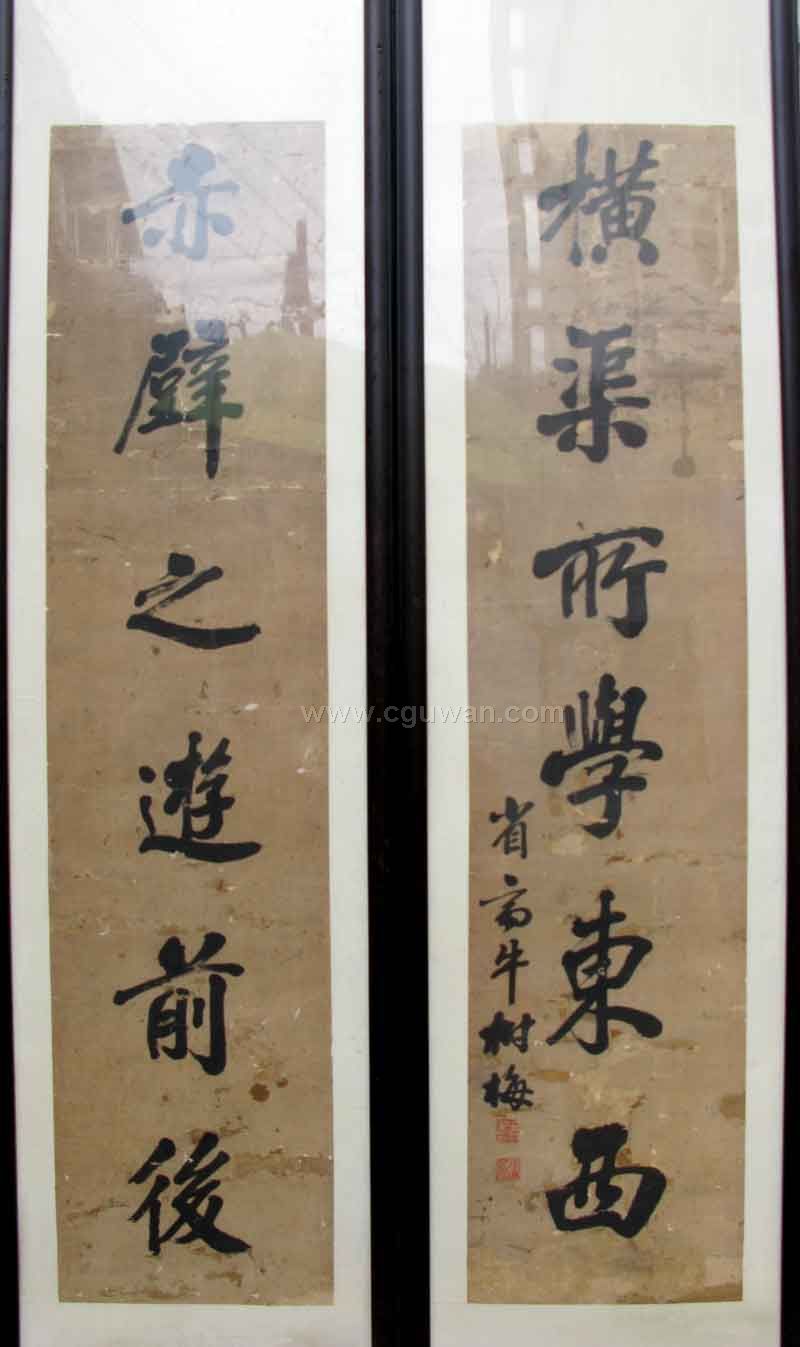 橫渠所學東西
省斋牛树梅
赤壁之遊前後
www.cguwan.com